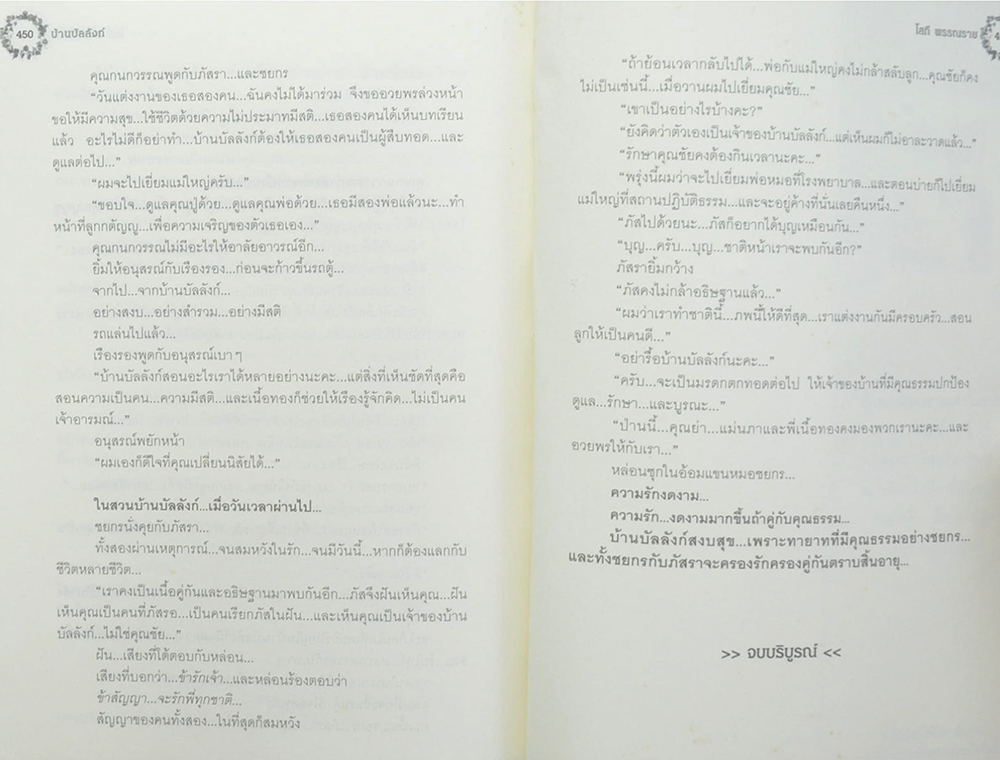 450 บ้านบัลลังก์
คุณกนกวรรณพูดกับภัสรา...และชยกร
“วันแต่งงานของเธอสองคน...ฉันคงไม่ได้มาร่วม จึงขออวยพรล่วงหน้า
ขอให้มีความสุข...ใช้ชีวิตด้วยความไม่ประมาทมีสติ...เธอสองคนได้เห็นบทเรียน
แล้ว อะไรไม่ดีก็อย่าทำ...บ้านบัลลังก์ต้องให้เธอสองคนเป็นผู้สืบทอด...และ
ดูแลต่อไป...”
“ผมจะไปเยี่ยมแม่ใหญ่ครับ...”
“ขอบใจ...ดูแลคุณปู่ด้วย...ดูแลคุณพ่อด้วย...เธอมีสองพ่อแล้วนะ...ทำ
หน้าที่ลูกกตัญญู...เพื่อความเจริญของตัวเธอเอง...”
คุณกนกวรรณไม่มีอะไรให้อาลัยอาวรณ์อีก...
ยิ้มให้อนุสรณ์กับเรืองรอง...ก่อนจะก้าวขึ้นรถตู้...
จากไป...จากบ้านบัลลังก์...
อย่างสงบ...อย่างสำรวม...อย่างมีสติ
รถแล่นไปแล้ว...
เรืองรองพูดกับอนุสรณ์เบา ๆ
“บ้านบัลลังก์สอนอะไรเราได้หลายอย่างนะคะ...แต่สิ่งที่เห็นชัดที่สุดคือ
สอนความเป็นคน...ความมีสติ...และเนื้อทองก็ช่วยให้เรืองรู้จักคิด...ไม่เป็นคน
เจ้าอารมณ์...”
อนุสรณ์พยักหน้า
“ผมเองก็ดีใจที่คุณเปลี่ยนนิสัยได้...”
ในสวนบ้านบัลลังก์...เมื่อวันเวลาผ่านไป...
ชยกรนั่งคุยกับภัสรา...
ทั้งสองผ่านเหตุการณ์...จนสมหวังในรัก...จนมีวันนี้...หากก็ต้องแลกกับ
ชีวิตหลายชีวิต...
“เราคงเป็นเนื้อคู่กันและอธิษฐานมาพบกันอีก...ภัสจึงฝันเห็นคุณ...ฝัน
เห็นคุณเป็นคนที่ภัสรอ...เป็นคนเรียกภัสในฝัน...และเห็นคุณเป็นเจ้าของบ้าน
บัลลังก์...ไม่ใช่คุณชัย...”
ฝัน...เสียงที่โต้ตอบกับหล่อน...
เสียงที่บอกว่า...ข้ารักเจ้า...และหล่อนร้องตอบว่า
ข้าสัญญา...จะรักพี่ทุกชาติ...
สัญญาของคนทั้งสอง...ในที่สุดก็สมหวัง
โสภี พรรณราย
“ถ้าย้อนเวลากลับไปได้...พ่อกับแม่ใหญ่คงไม่กล้าสลับลูก...คุณชัยก็คง
ไม่เป็นเช่นนี้...เมื่อวานผมไปเยี่ยมคุณชัย...”
“เขาเป็นอย่างไรบ้างคะ?”
“ยังคิดว่าตัวเองเป็นเจ้าของบ้านบัลลังก์...แต่เห็นผมก็ไม่อาละวาดแล้ว...”
“รักษาคุณชัยคงต้องกินเวลานะคะ...”
“พรุ่งนี้ผมว่าจะไปเยี่ยมพ่อหมอที่โรงพยาบาล...และตอนบ่ายก็ไปเยี่ยม
แม่ใหญ่ที่สถานปฏิบัติธรรม...และจะอยู่ค้างที่นั่นเลยคืนหนึ่ง...”
“ภัสไปด้วยนะ...ภัสก็อยากได้บุญเหมือนกัน...”
“บุญ...ครับ...บุญ...ชาติหน้าเราจะพบกันอีก?”
ภัสรายิ้มกว้าง
“ภัสคงไม่กล้าอธิษฐานแล้ว...”
“ผมว่าเราทำชาตินี้...ภพนี้ให้ดีที่สุด...เราแต่งงานกันมีครอบครัว...สอน
ลูกให้เป็นคนดี...”
“อย่ารื้อบ้านบัลลังก์นะคะ...”
“ครับ...จะเป็นมรดกตกทอดต่อไป ให้เจ้าของบ้านที่มีคุณธรรมปกป้อง
ดูแล...รักษา...และบูรณะ...”
“ป่านนี้...คุณย่า...แม่นภาและพี่เนื้อทองคงมองพวกเรานะคะ...และ
อวยพรให้กับเรา...”
หล่อนซุกในอ้อมแขนหมอชยกร...
ความรักงดงาม...
ความรัก...งดงามมากขึ้นถ้าคู่กับคุณธรรม...
บ้านบัลลังก์สงบสุข...เพราะทายาทที่มีคุณธรรมอย่างชยกร...
และทั้งชยกรกับภัสราจะครองรักครองคู่กันตราบสิ้นอายุ...
>> จบบริบูรณ์ <<